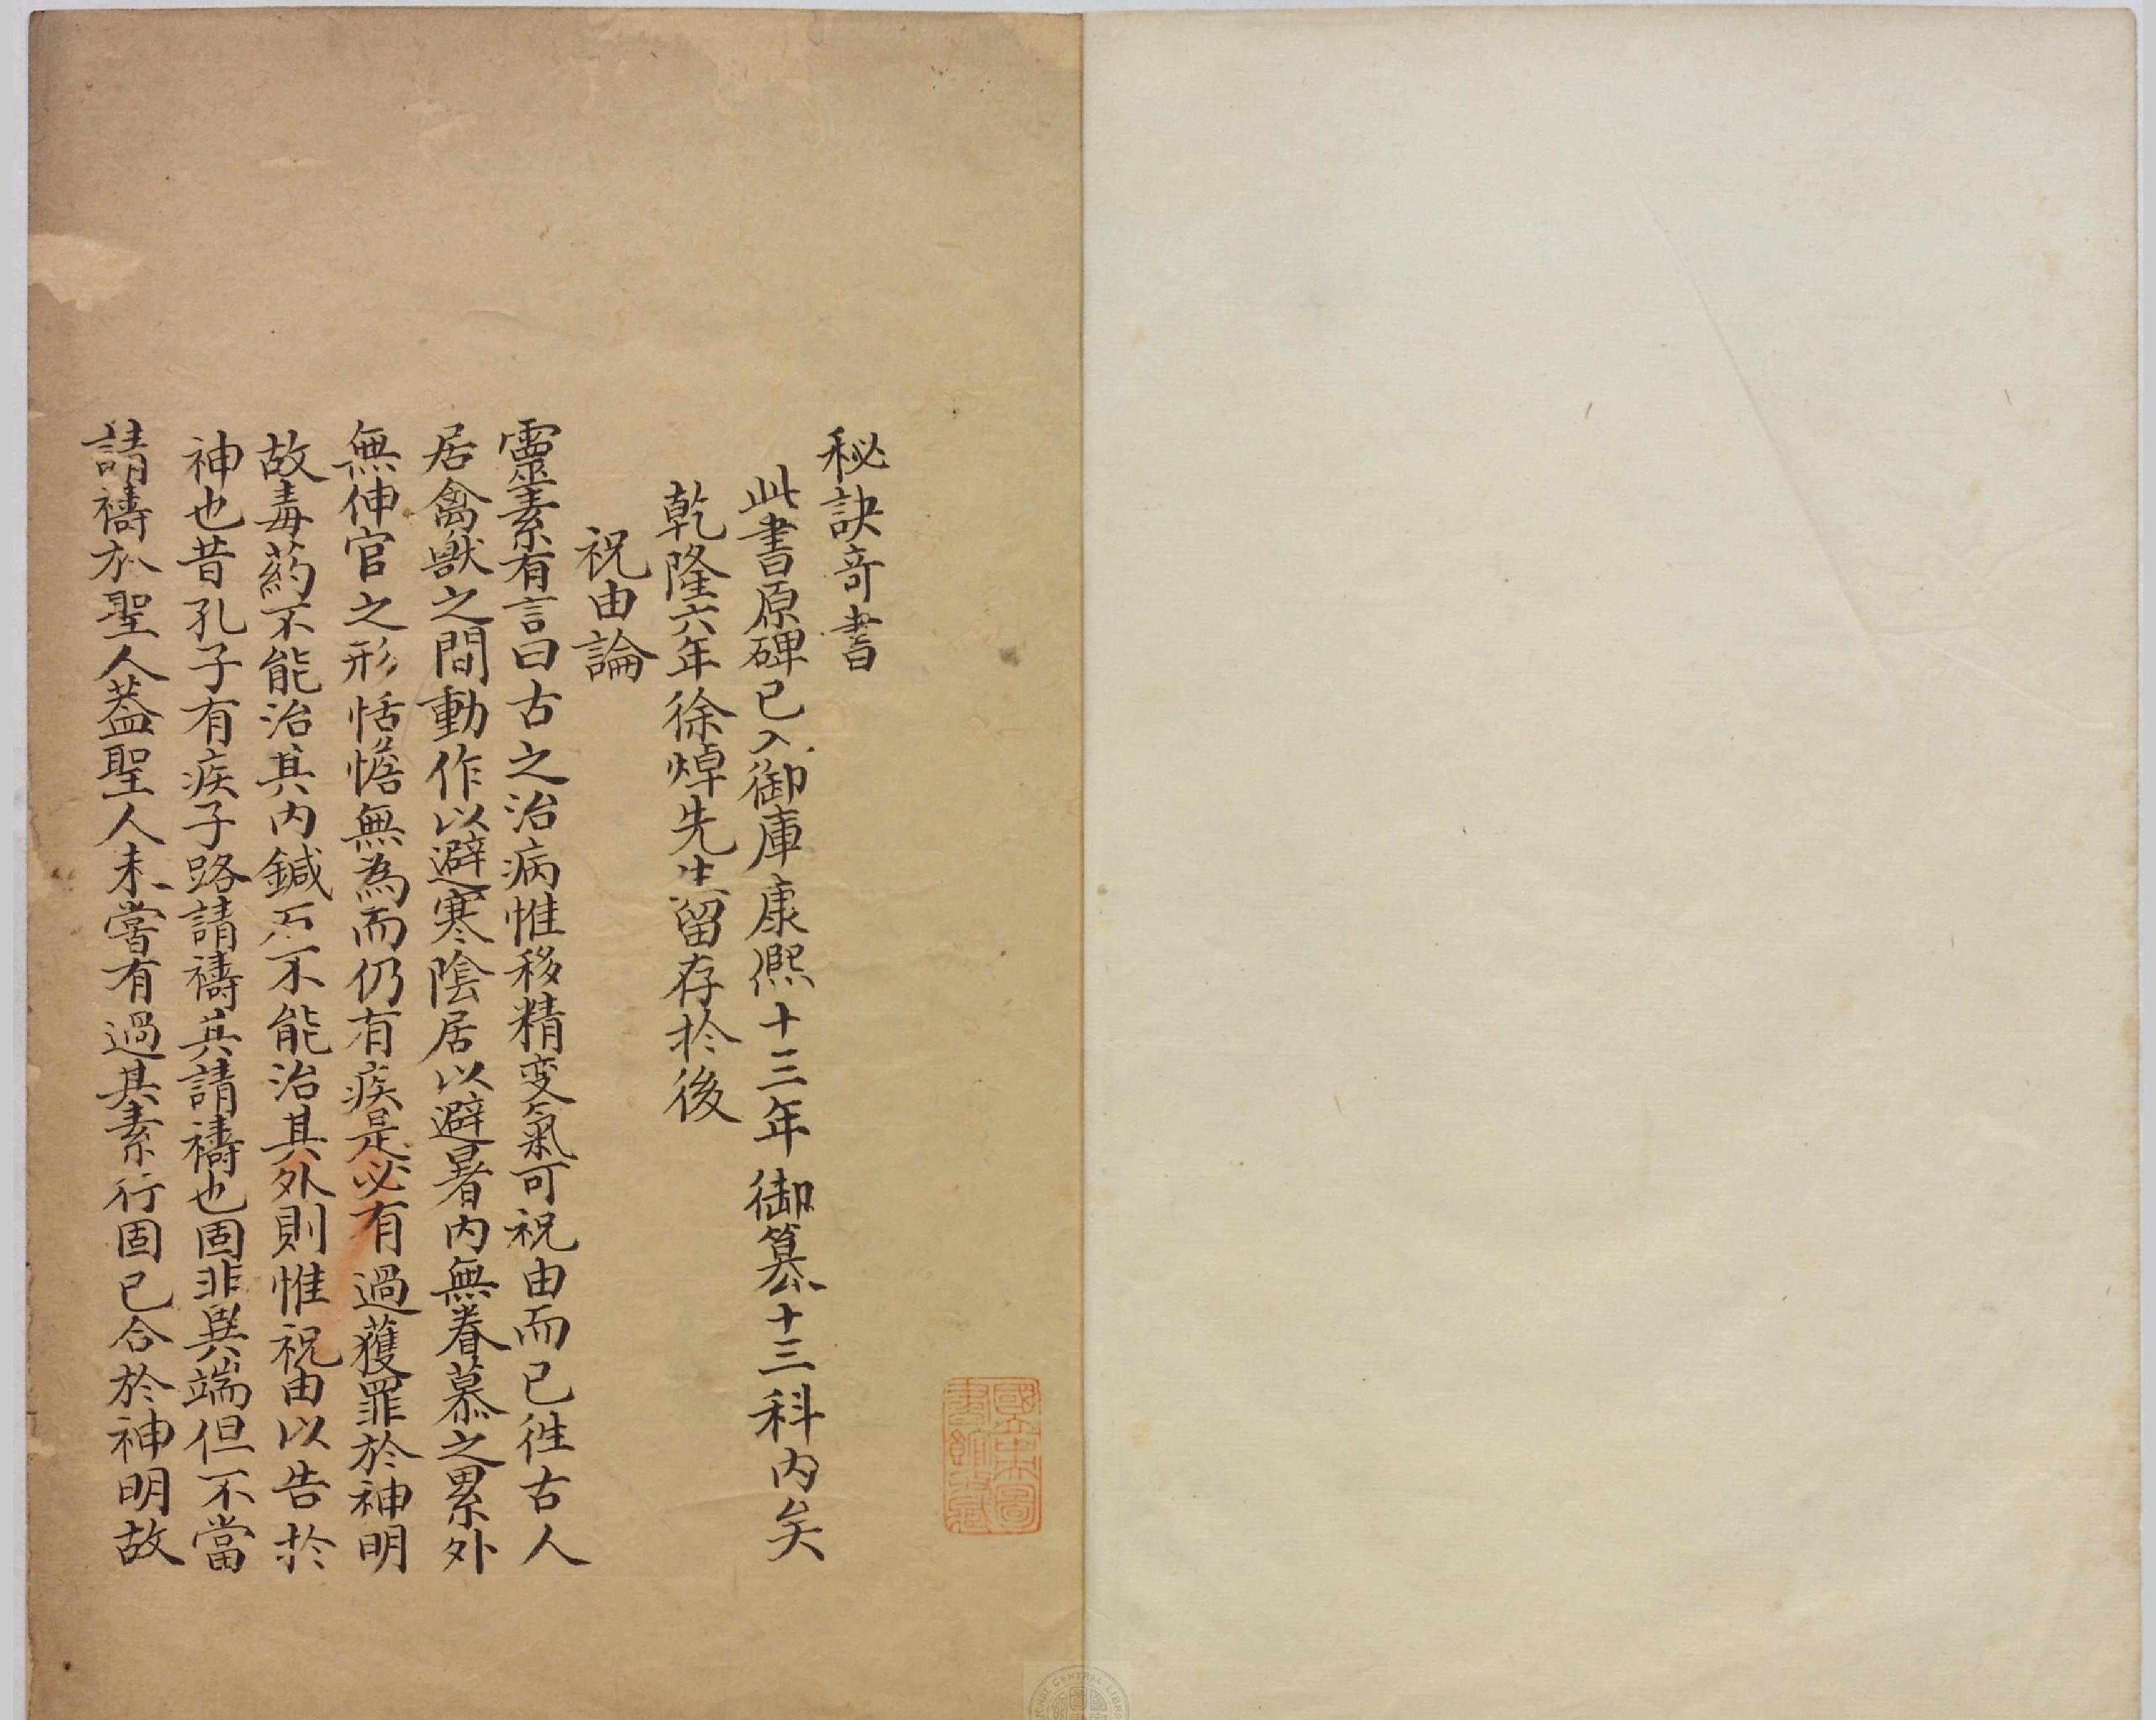 秘訣竒書
此書原碑已入御庫康熙十三年御篡十三科内矣
乾隆六年徐焯先生留存扵後
祝由論
靈素有言曰古之治病惟移精变氣可祝由而已徃古人
居禽獸之間動作以避寒陰居以避暑内無眷慕之累外
無伸官之形恬憺無為而仍有疾是必有過獲罪於神明
故毒药不能治其内鍼石不能治其外則惟祝由以告扵
神也昔孔子有疾子路請禱其請禱也固非異端但不當
請禱於聖人葢聖人未嘗有過其素行固已合於神明故
國立中央圖書館藏